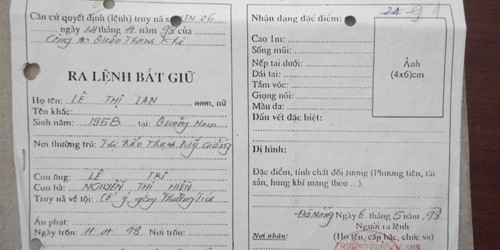 Căn cứ quyết định (lệnh) truy nã số TN 06
ngày tháng 11. năm 98 của
Công an Quận Thanh Khê
RA LỆNH BẮT GIỮ
Họ tên: LÊ THỊ LAN nam, nữ
Tên khác:
Sinh năm: 1958 tại: Quảng Nam
Nơi thường trú: Thanh
Con ông: LÊ TRÍ
Con bà: NGUYỄN THỊ HIỀN
Truy nã về tội: Cố ý gây Thương Tích
Án phạt:
Ngày trốn: 11. 11. 98. Nơi trốn:
2A 91
Nhận dạng đặc điểm:
Cao 1m:
Sống mũi:
Nếp tai dưới:
Dái tai:
Tầm vóc:
Giọng nói:
Màu da:
Dấu vết đặc biệt:
Ảnh
(4x6)cm
Dị hình:
Đặc điểm, tính chất đối tượng (Phương tiện, tài
sản, hung khí mang theo ...)
Đà Nẵng Ngày 6. tháng 5 năm 98.
Người ra lệnh
Nơi nhận: (Họ tên, cấp bậc, chức vụ)